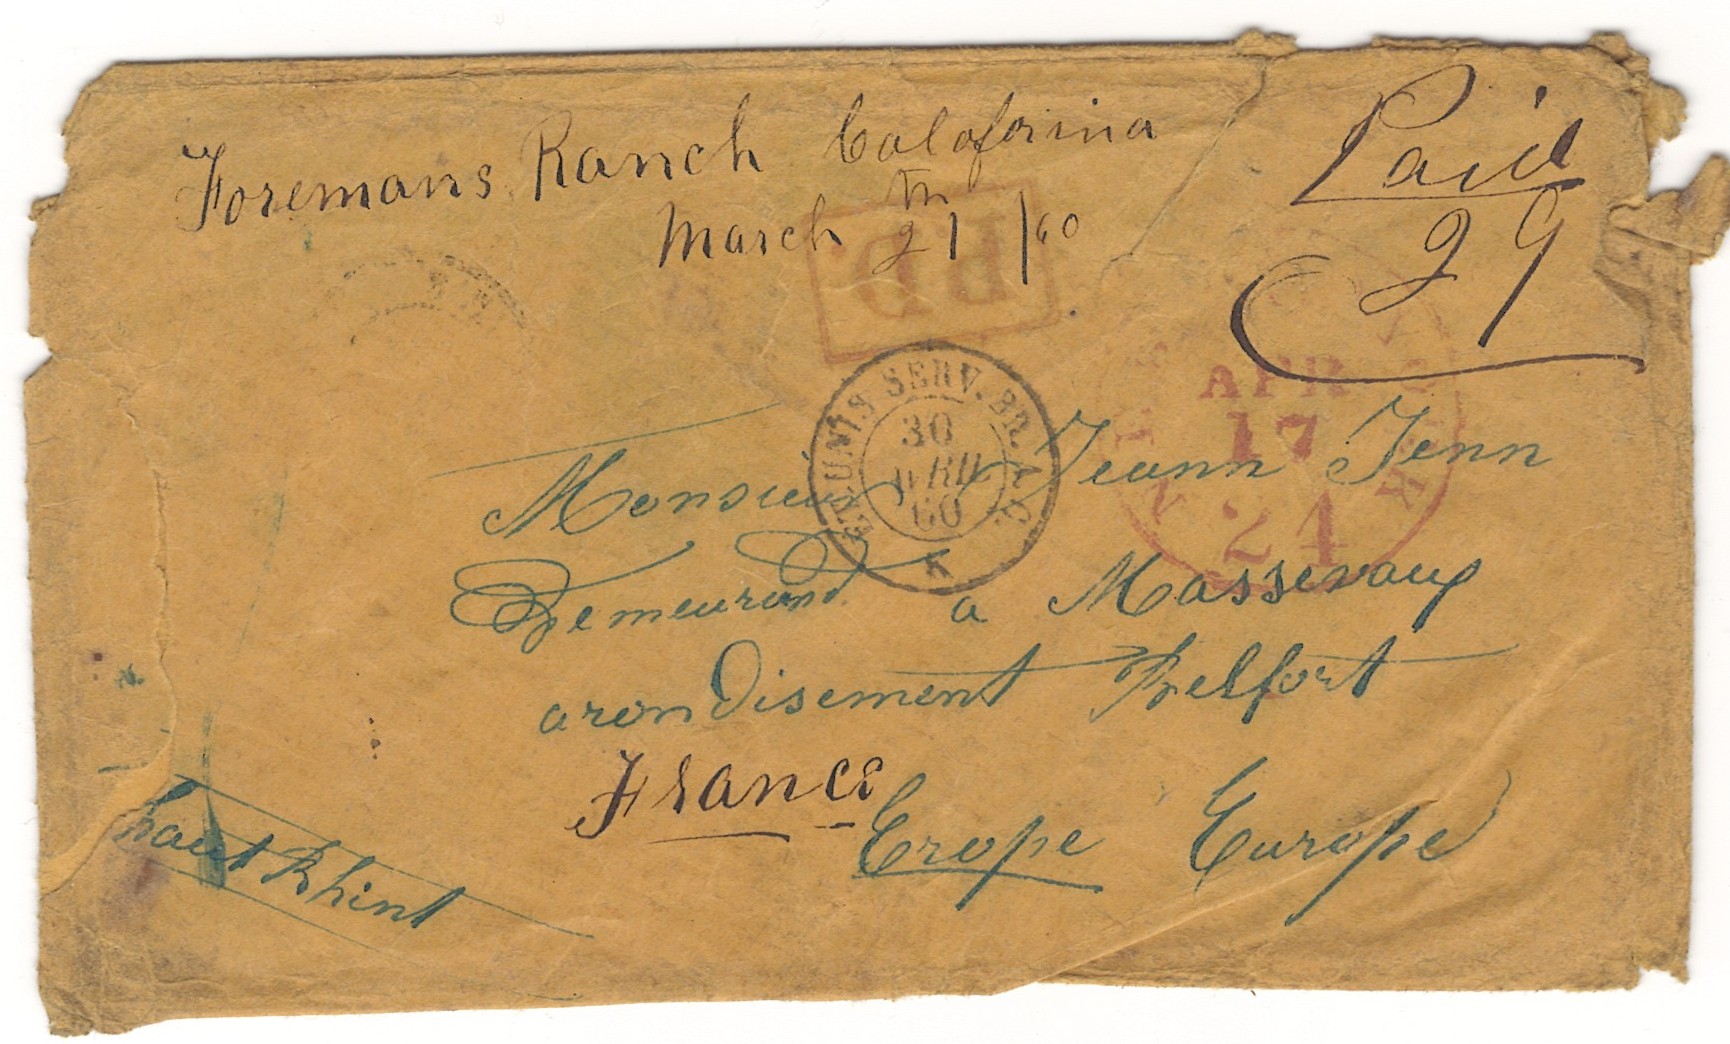 Foremans Ranch Calaforina
March 21th /60
Paid
29
PD
ET. UNIS SERV. BR. A.C.
30
AVRIL
60
K
APR
17
24
Monsieur Jeann Jenn
Demeurand a Massevaux
arondisement Belfort
France
Erope Europe
haut Rhint